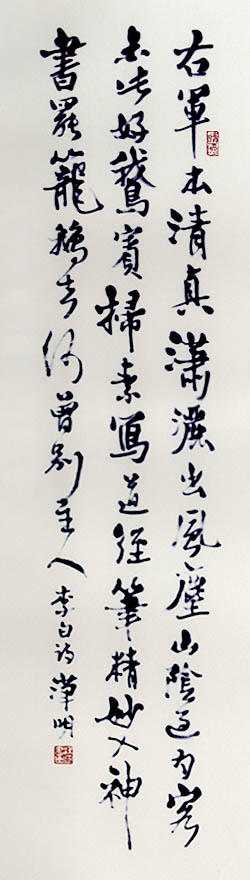 右軍本清真瀟灑出風塵山陰過羽客
愛此好鵝賓掃素寫道經筆精妙入神
書罷籠鵝去何曾別主人 李白詩 漢明